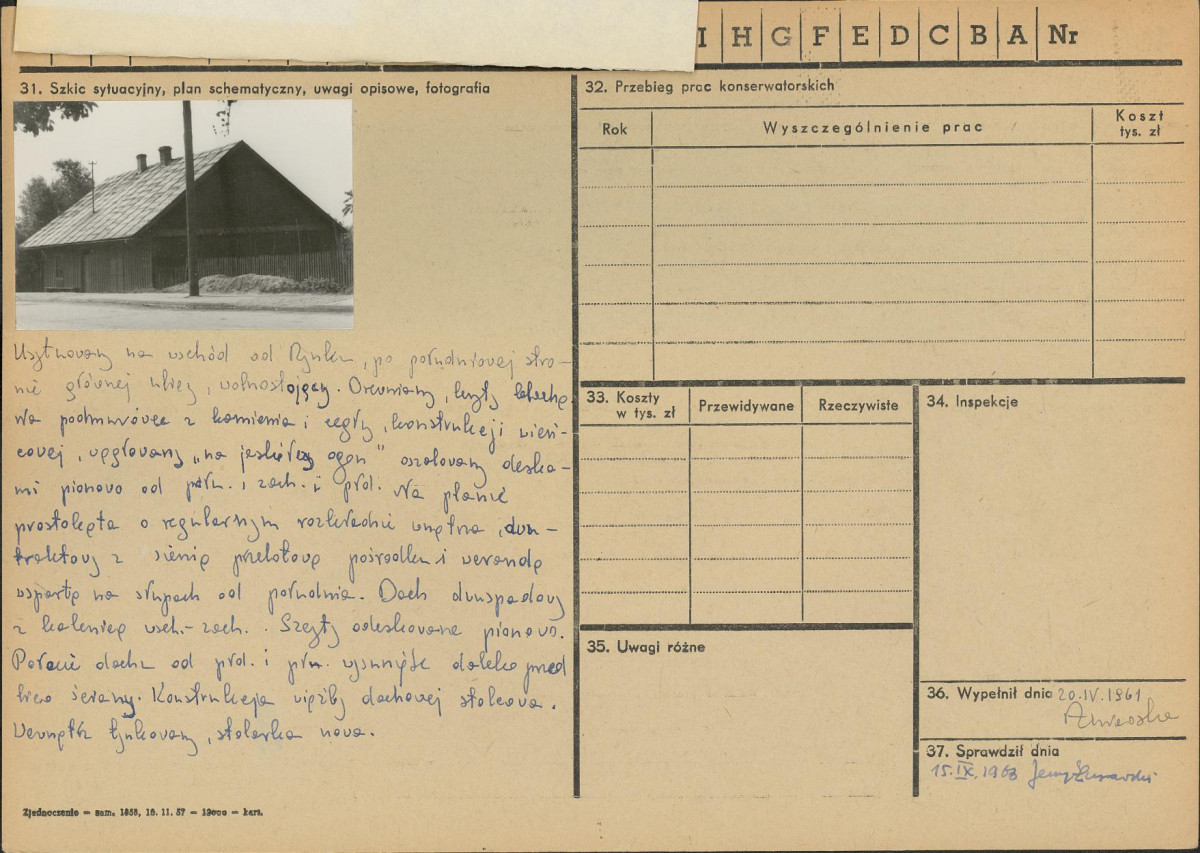 I H G F E D C B A Nr
31. Szkic sytuacyjny, plan schematyczny, uwagi opisowe, fotografia
Usytuowany na wschód od Rynku, po południowej stro-
nie głównej ulicy, wolnostojący. Drewniany, kryty blachą.
Na podmurówce z kamienia i cegły, konstrukcji wień-
cowej, węgłowany „na jaskółczy ogon" oszalowany deska-
mi pionowo od płn. i zach. i płd. Na planie
prostokąta o regularnym rozkładzie wnętrza, dwu-
traktowy z sienią przelotową pośrodku i werandą
wspartą na słupach od południa. Dach dwuspadowy
z kalenicą wsch.-zach. Szczyty odeskowane pionowo.
Połacie dachu od płd. i płn. wysunięte daleko przed
lico ściany. Konstrukcja więźby dachowej stolcowa.
Wewnątrz tynkowany, stolarka nowa.
Zjednoczenie – zam. 1958, 16. 11. 57 – – kart.
32. Przebieg prac konserwatorskich
Rok Wyszczególnienie prac Koszt tys. zł
33. Koszty w tys. zł Przewidywane Rzeczywiste
34. Inspekcje
35. Uwagi różne
36. Wypełnił dnia 20.IV.1961
37. Sprawdził dnia
15.IX.1963 Jerzy